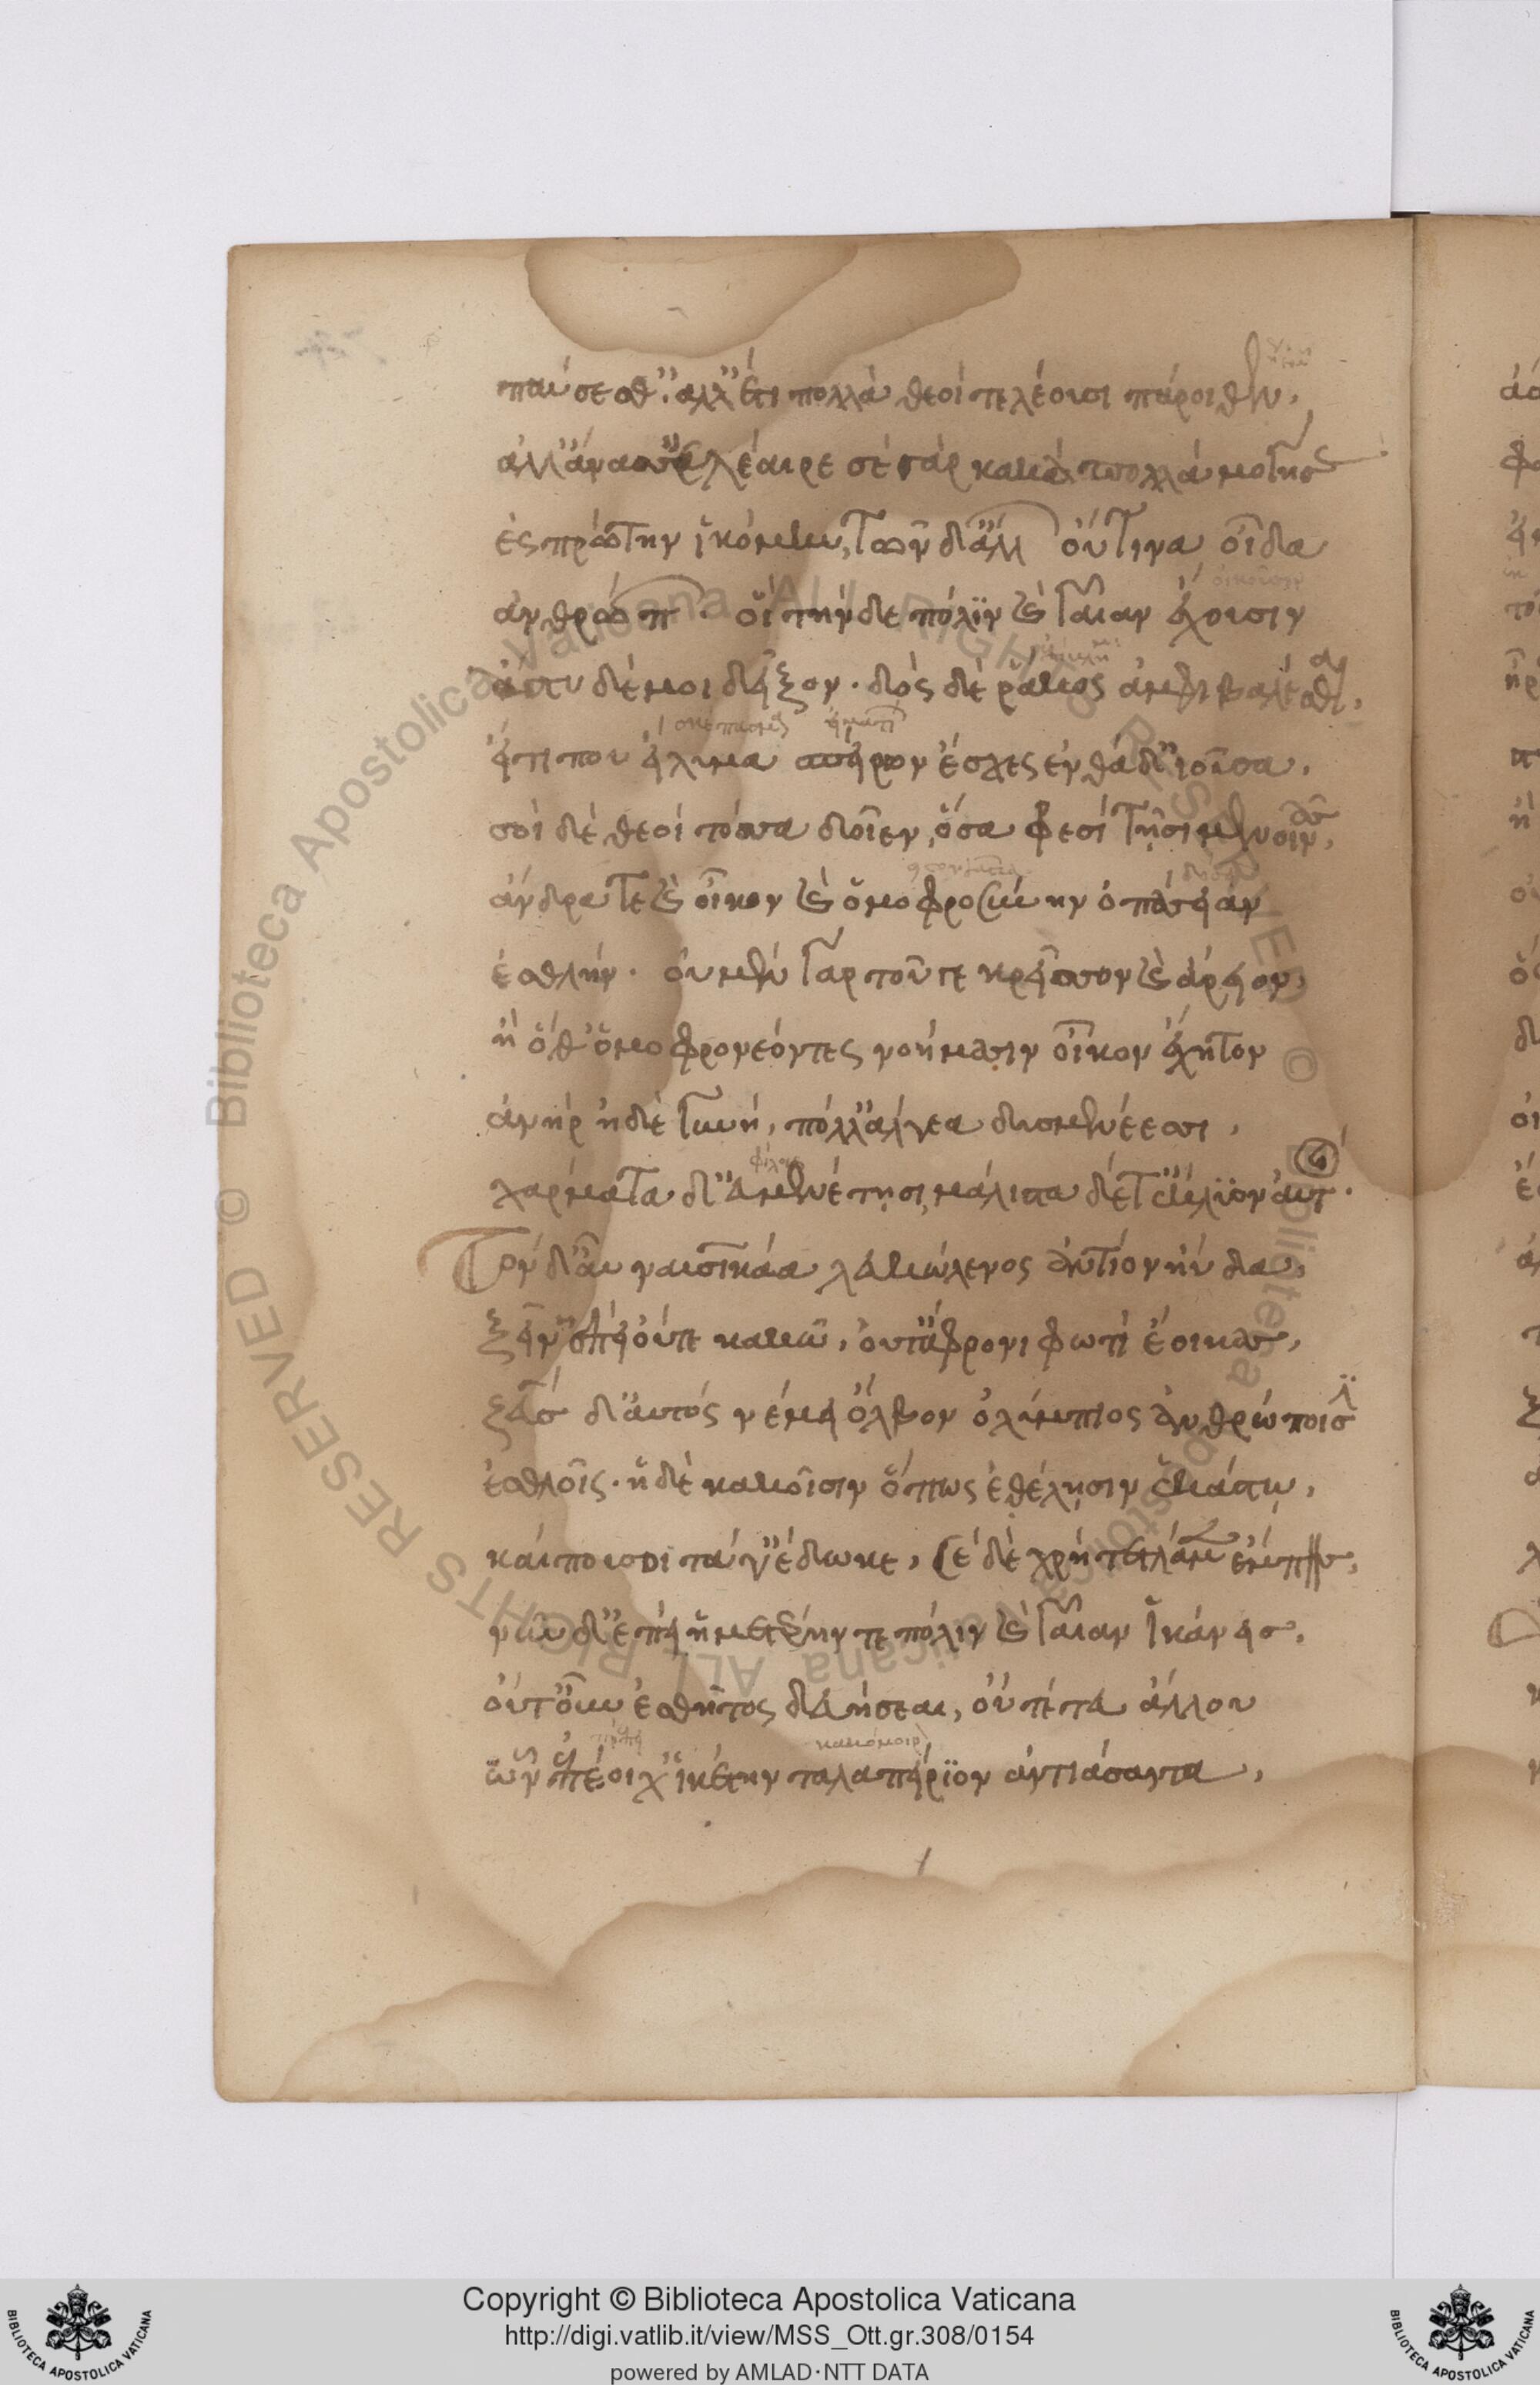 παύσεσθ'· ἀλλ' ἔτι πολλὰ θεοὶ τελέουσι πάροιθεν,
ἀλλ' ἄνασσ' ἐλέαιρε σὲ γὰρ κακὰ πολλὰ μογήσας
ἐς πρώτην ἱκόμην, τῶν δ' ἄλλων οὔτινα οἶδα
οἰκοῦσιν
ἀνθρώπων· οἳ τήνδε πόλιν καὶ γαῖαν ἔχουσιν
ἄστυ δέ μοι δεῖξον· δὸς δὲ ῥάκος ἀμφιβαλέσθαι,
εἴτι που εἴλυμα σπείρων ἔσχες ἐνθάδ' ἰοῦσα.
σοὶ δὲ θεοὶ τόσσα δοῖεν, ὅσα φρεσὶ τῇσι μενοινᾷς,
ἄνδρα τε καὶ οἶκον καὶ ὁμοφροσύνην ὀπάσειαν
ἐσθλήν· οὐ μὲν γὰρ τοῦτε κρεῖσσον καὶ ἄρειον,
ἢ ὅθ' ὁμοφρονέοντες νοήμασιν οἶκον ἔχητον
ἀνὴρ ἠδὲ γυνή, πόλλ' ἄλγεα δυσμενέεσσι,
φίλοις
χάρματα δ' εὐμενέτῃσι, μάλιστα δέ τ' ἔκλυον αὐτοί·
Τὸν δ' αὖ ναυσικάα λευκώλενος ἀντίον ηὔδα,
ξεῖν' ἐπεὶ οὔτε κακῷ, οὔτ' ἄφρονι φωτὶ ἔοικας,
ζεὺς δ' αὐτὸς νέμει ὄλβον ὀλύμπιος ἀνθρώποισι
ἐσθλοῖς· ἠδὲ κακοῖσιν ὅπως ἐθέλῃσιν ἑκάστῳ,
καί που σοὶ τά γ' ἔδωκε, σὲ δὲ χρὴ τετλάμεν ἔμπης,
νῦν δ' ἐπεὶ ἡμετέρην τε πόλιν καὶ γαῖαν ἱκάνεις.
οὔτ' οὖν ἐσθῆτος δευήσεαι, οὔτέ τευ ἄλλου
κακόμοιρον
ὧν ἐπέοιχ' ἱκέτην ταλαπείριον ἀντιάσαντα,
Copyright © Biblioteca Apostolica Vaticana
http://digi.vatlib.it/view/MSS_Ott.gr.308/0154
powered by AMLAD·NTT DATA